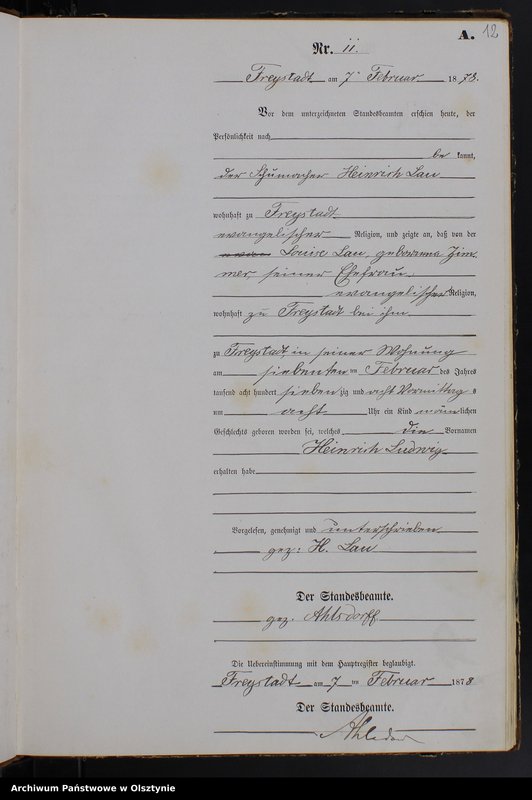 A. 12
Nr. 11.
Freystadt am 7. Februar 1878.
Vor dem unterzeichneten Standesbeamten erschien heute, der
Persönlichkeit nach
be kannt,
der Schumacher Heinrich Lau
wohnhaft zu Freystadt
evangelischer Religion, und zeigte an, daß von der
Louise Lau, geborenne Zim
mer, seiner Ehefrau
evangelischer Religion,
wohnhaft zu Freystadt bei ihm
zu Freystadt, in seiner Wohnung
am siebenten ten Februar des Jahres
tausend acht hundert sieben zig und acht Vormittag s
um acht Uhr ein Kind männlichen
Geschlechts geboren worden sei, welches die Vornamen
Heinrich Ludwig
erhalten habe
Vorgelesen, genehmigt und unterschrieben
gez: H. Lau
Der Standesbeamte.
gez. Ahlsdorff.
Die Uebereinstimmung mit dem Hauptregister beglaubigt.
Freystadt am 7 ten Februar 1878
Der Standesbeamte.
Archiwum Państwowe w Olsztynie